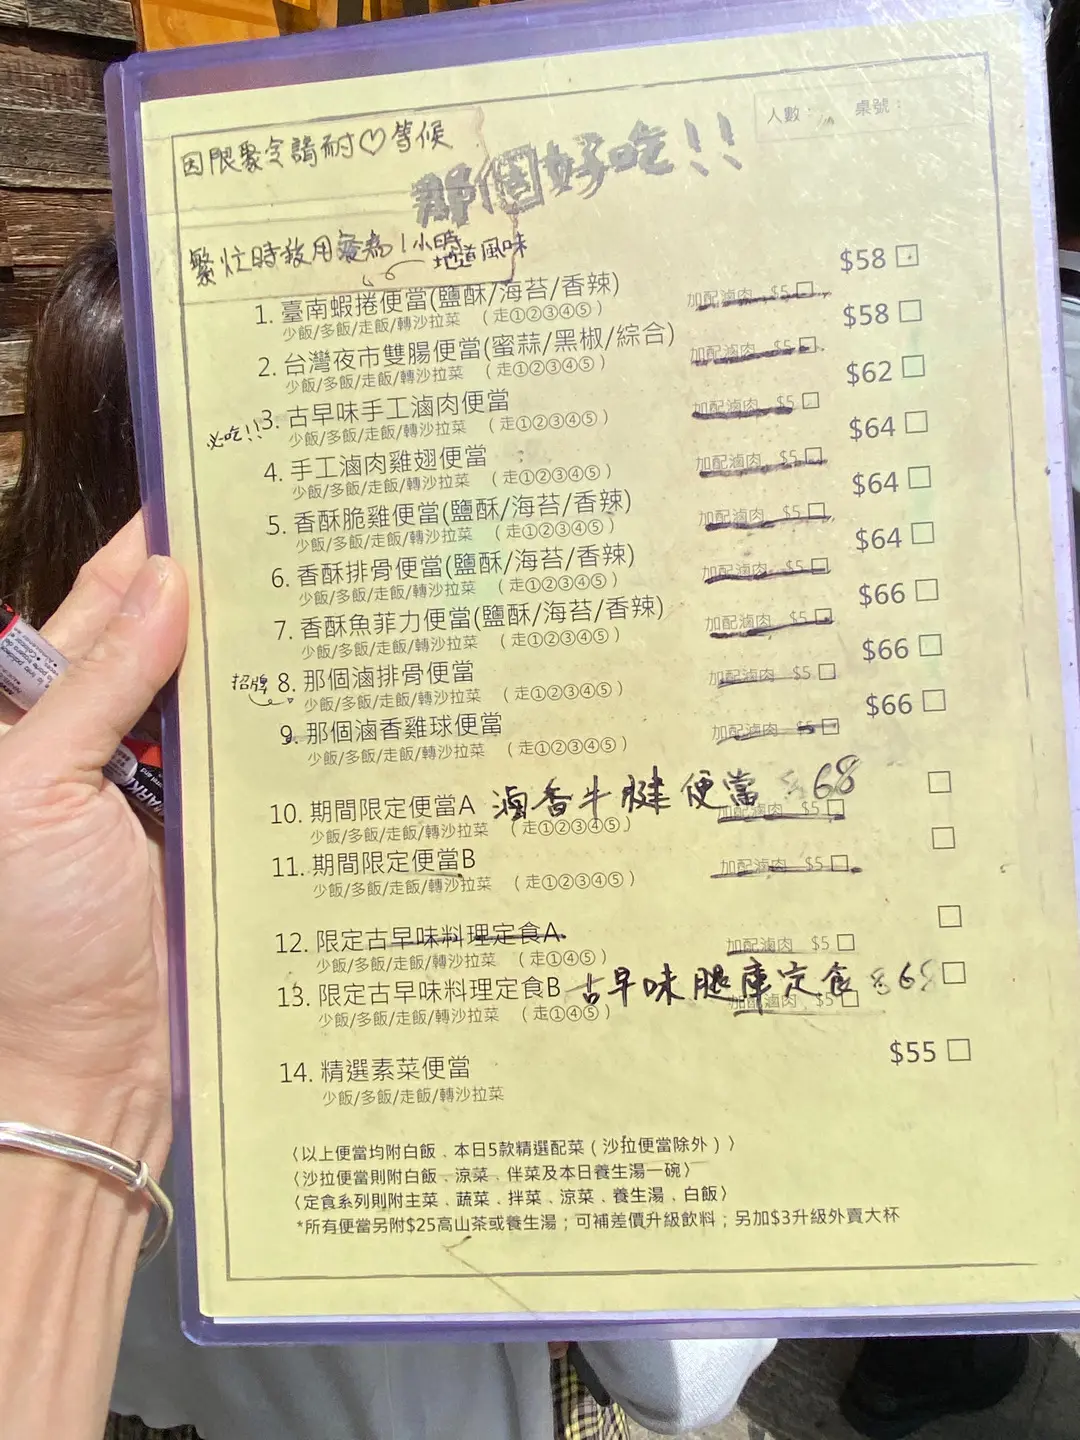 人數： 桌號：
因限聚令請耐♡等候
那個好吃!!
繁忙時敬用餐為1小時
地道風味
1. 臺南蝦捲便當(鹽酥/海苔/香辣) $58 □
少飯/多飯/走飯/轉沙拉菜 (走①②③④⑤) 加配滷肉 $5 □
2. 台灣夜市雙腸便當(蜜蒜/黑椒/綜合) $58 □
少飯/多飯/走飯/轉沙拉菜 (走①②③④⑤) 加配滷肉 $5 □
必吃!! 3. 古早味手工滷肉便當 $62 □
少飯/多飯/走飯/轉沙拉菜 (走①②③④⑤) 加配滷肉 $5 □
4. 手工滷肉雞翅便當 $64 □
少飯/多飯/走飯/轉沙拉菜 (走①②③④⑤) 加配滷肉 $5 □
5. 香酥脆雞便當(鹽酥/海苔/香辣) $64 □
少飯/多飯/走飯/轉沙拉菜 (走①②③④⑤) 加配滷肉 $5 □
6. 香酥排骨便當(鹽酥/海苔/香辣) $64 □
少飯/多飯/走飯/轉沙拉菜 (走①②③④⑤) 加配滷肉 $5 □
7. 香酥魚菲力便當(鹽酥/海苔/香辣) $66 □
少飯/多飯/走飯/轉沙拉菜 (走①②③④⑤) 加配滷肉 $5 □
招牌 8. 那個滷排骨便當 $66 □
少飯/多飯/走飯/轉沙拉菜 (走①②③④⑤) 加配滷肉 $5 □
9. 那個滷香雞球便當 $66 □
少飯/多飯/走飯/轉沙拉菜 (走①②③④⑤) 加配滷肉 $5 □
10. 期間限定便當A 滷香牛腱便當 $68 □
少飯/多飯/走飯/轉沙拉菜 (走①②③④⑤) 加配滷肉 $5 □
11. 期間限定便當B □
少飯/多飯/走飯/轉沙拉菜 (走①②③④⑤) 加配滷肉 $5 □
12. 限定古早味料理定食A □
少飯/多飯/走飯/轉沙拉菜 (走①④⑤) 加配滷肉 $5 □
13. 限定古早味料理定食B 古早味腿庫定食 $68 □
少飯/多飯/走飯/轉沙拉菜 (走①④⑤) 加配滷肉 $5 □
14. 精選素菜便當 $55 □
少飯/多飯/走飯/轉沙拉菜
〈以上便當均附白飯﹑本日5款精選配菜（沙拉便當除外）〉
〈沙拉便當則附白飯﹑涼菜﹑伴菜及本日養生湯一碗〉
〈定食系列則附主菜﹑蔬菜﹑拌菜﹑涼菜﹑養生湯﹑白飯〉
*所有便當另附$25高山茶或養生湯；可補差價升級飲料；另加$3升級外賣大杯